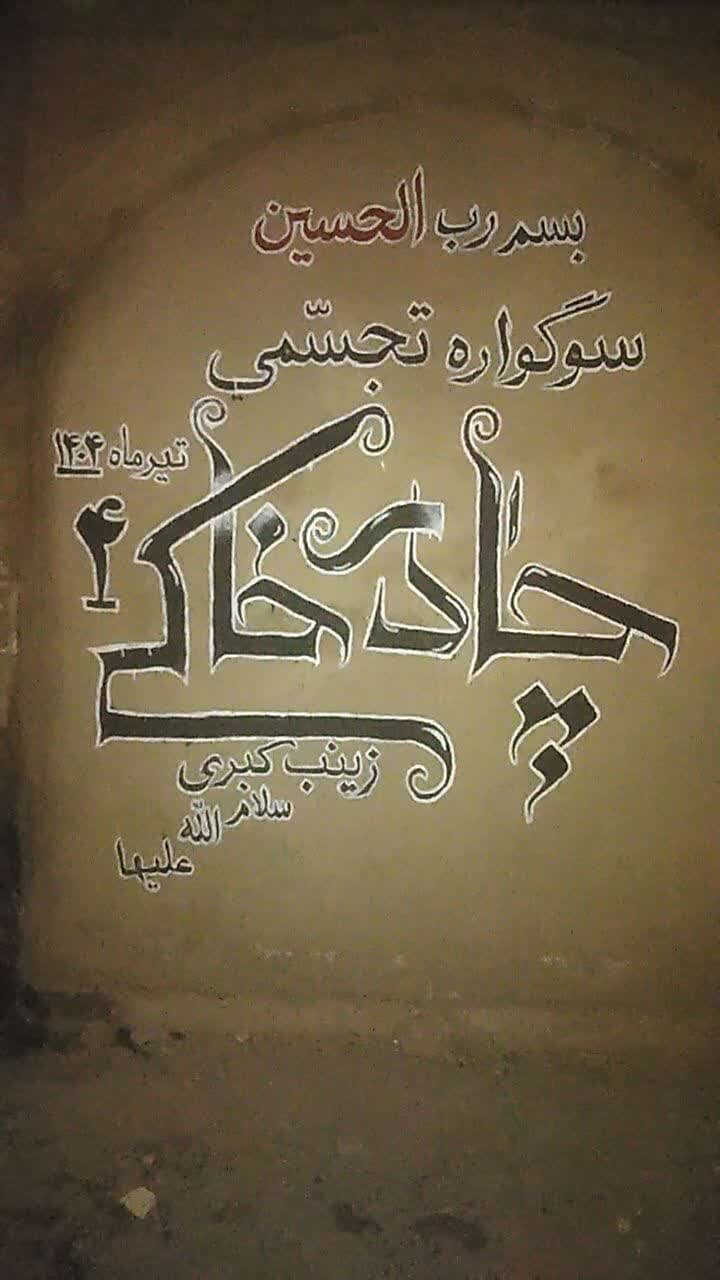 بسم رب الحسین
سوگواره تجسّمي
تیر ماه ۱۴۰۴
چادر خاکی ۴
زینب کبری
سلام الله
علیها